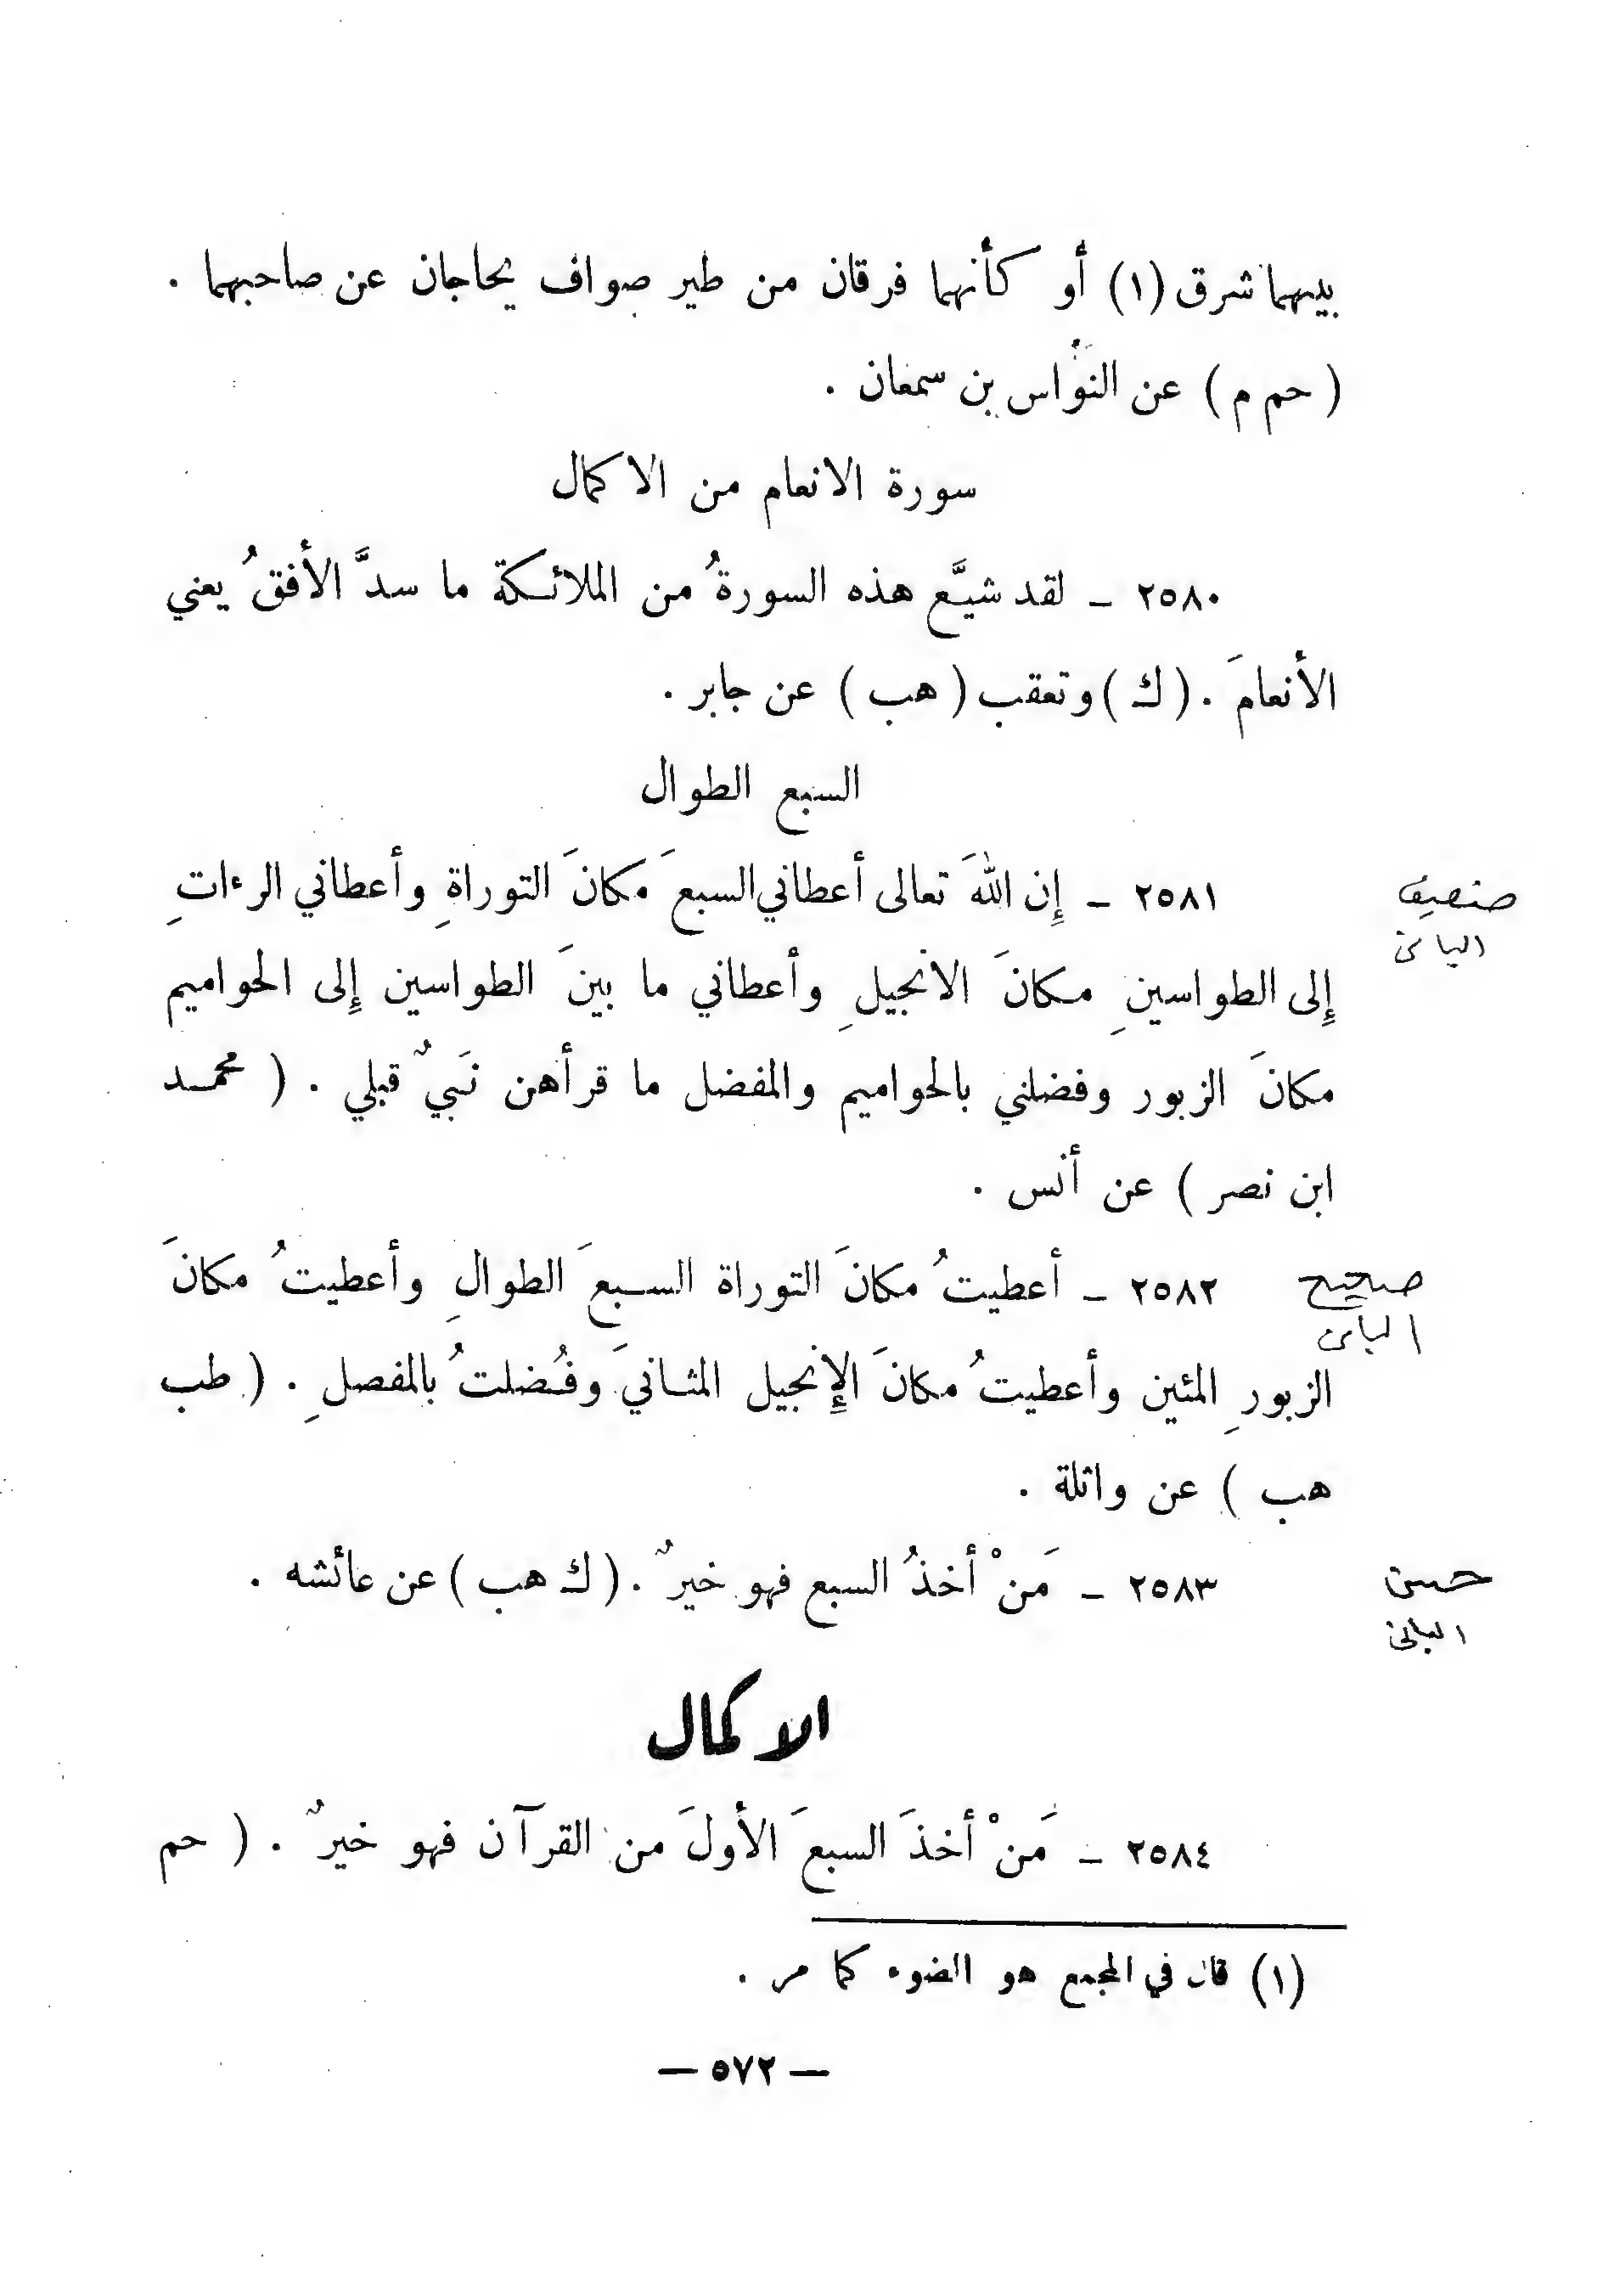 بينهما شرق (١) أو كأنهما فرقان من طير صواف يحاجان عن صاحبهما .
( حم م ) عن النوَّاس بن سمعان .
سورة الانعام من الاكمال
٢٥٨٠ ـ لقد شيَّع هذه السورةُ من الملائكة ما سدَّ الأفقُ يعني
الأنعامَ . ( ك ) وتعقب ( هب ) عن جابر .
السبع الطوال
٢٥٨١ ـ إِن اللهَ تعالى أعطاني السبعَ مكانَ التوراةِ وأعطاني الرءاتِ
ضعيف
البانى
إِلى الطواسينِ مكانَ الانجيلِ وأعطاني ما بينَ الطواسين إِلى الحواميم
مكانَ الزبور وفضلني بالحواميم والمفضل ما قرأهن نَبيٌ قبلي . ( محمد
ابن نصر ) عن أنس .
٢٥٨٢ ـ أعطيتُ مكانَ التوراة السبعَ الطوالِ وأعطيتُ مكانَ
صحيح
البانى
الزبورِ المئين وأعطيتُ مكانَ الإِنجيل المثانيَ وفُضلتُ بالمفصلِ . ( طب
هب ) عن واثلة .
٢٥٨٣ ـ مَنْ أخذُ السبع فهو خيرٌ . ( ك هب ) عن عائشه .
حسن
البانى
الاكمال
٢٥٨٤ ـ مَنْ أخذَ السبعَ الأولَ من القرآن فهو خيرٌ . ( حم
(١) قال في المجمع هو الضوء كما مر .
— ٥٧٢ —